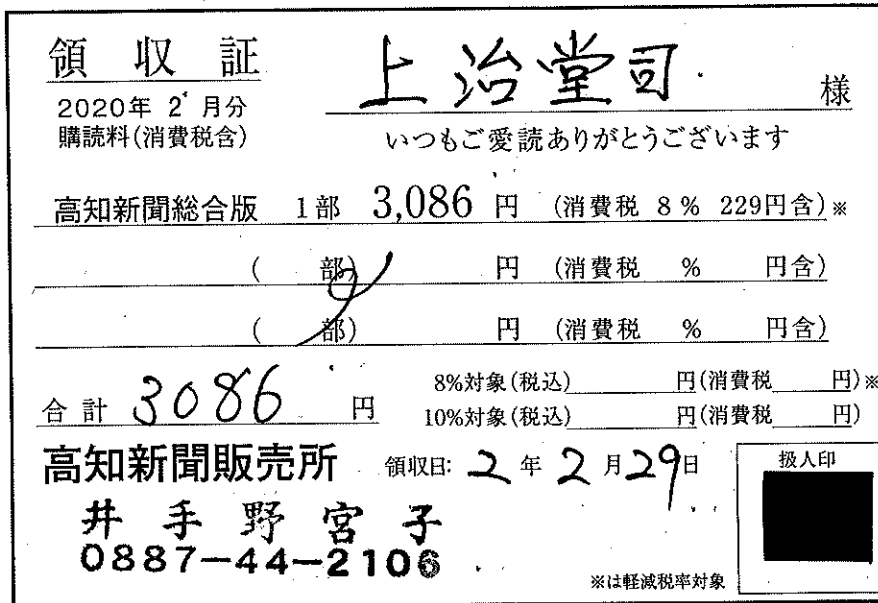 領収証
上治堂司 様
2020年 2月分
購読料(消費税含)
いつもご愛読ありがとうございます
高知新聞総合版 1部 3,086 円 (消費税 8% 229円含)※
( 部) 円 (消費税 % 円含)
( 部) 円 (消費税 % 円含)
合計 3086 円
8%対象(税込) 円(消費税 円)※
10%対象(税込) 円(消費税 円)
高知新聞販売所 領収日: 2年2月29日
扱人印
井手野宮子
0887-44-2106
※は軽減税率対象